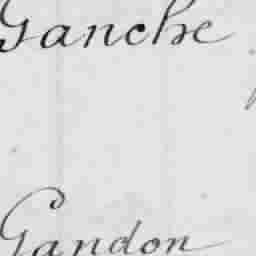 Ganche
Gandon